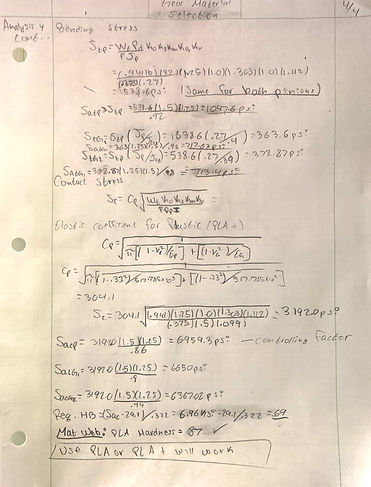 Gear Material Selection
4/4
Analysis 4 Cont..
Bending Stress
Stp = Wt Pd Ko Ks Km KB Kv / F Jp
= (.941lb)(32)(1.75)(1.0)(1.303)(1.0)(1.112) / (.375)(.27)
= 538.6psi (Same for both pinions)
Satp > Stp = 538.6(1.5)(1.25) = 1097.6 psi / .92
StG1 = Stp (Jp/JG1) = 538.6(.27/.4) = 363.6 psi
StG2 = Stp (Jp/JG2) = 538.6(.27/.39) = 372.87 psi
SatG2 = 372.87(1.25)(1.5)/.98 = 713.4 psi
Contact Stress
Sc = Cp √ Wt Ko Ks Km Kv / F Dp I =
Elastic coefficient for Plastic (PLA+)
Cp = √ 1 / π [(1-v²)/Ep] + [(1-v²)/EG]
Cp =
= 304.1
Sc = 304.1 √ (.941)(1.75)(1.0)(1.303)(1.112) / (.375)(.5)(.099) = 3192.0 psi
Sacp = 3192.0 (1.5)(1.25) / .86 = 6959.3 psi — controlling factor
SacG1 = 3192.0 (1.5)(1.25) / .9 = 6650 psi
SacG2 = 3192.0 (1.5)(1.25) / .94 = 6367.02 psi
Req. HB = (Sac - 29.1)/.322 = 6.96 ksi - 29.1/.322 = 69
Mat Web: PLA Hardness = 87 ✓
Use PLA or PLA + will work